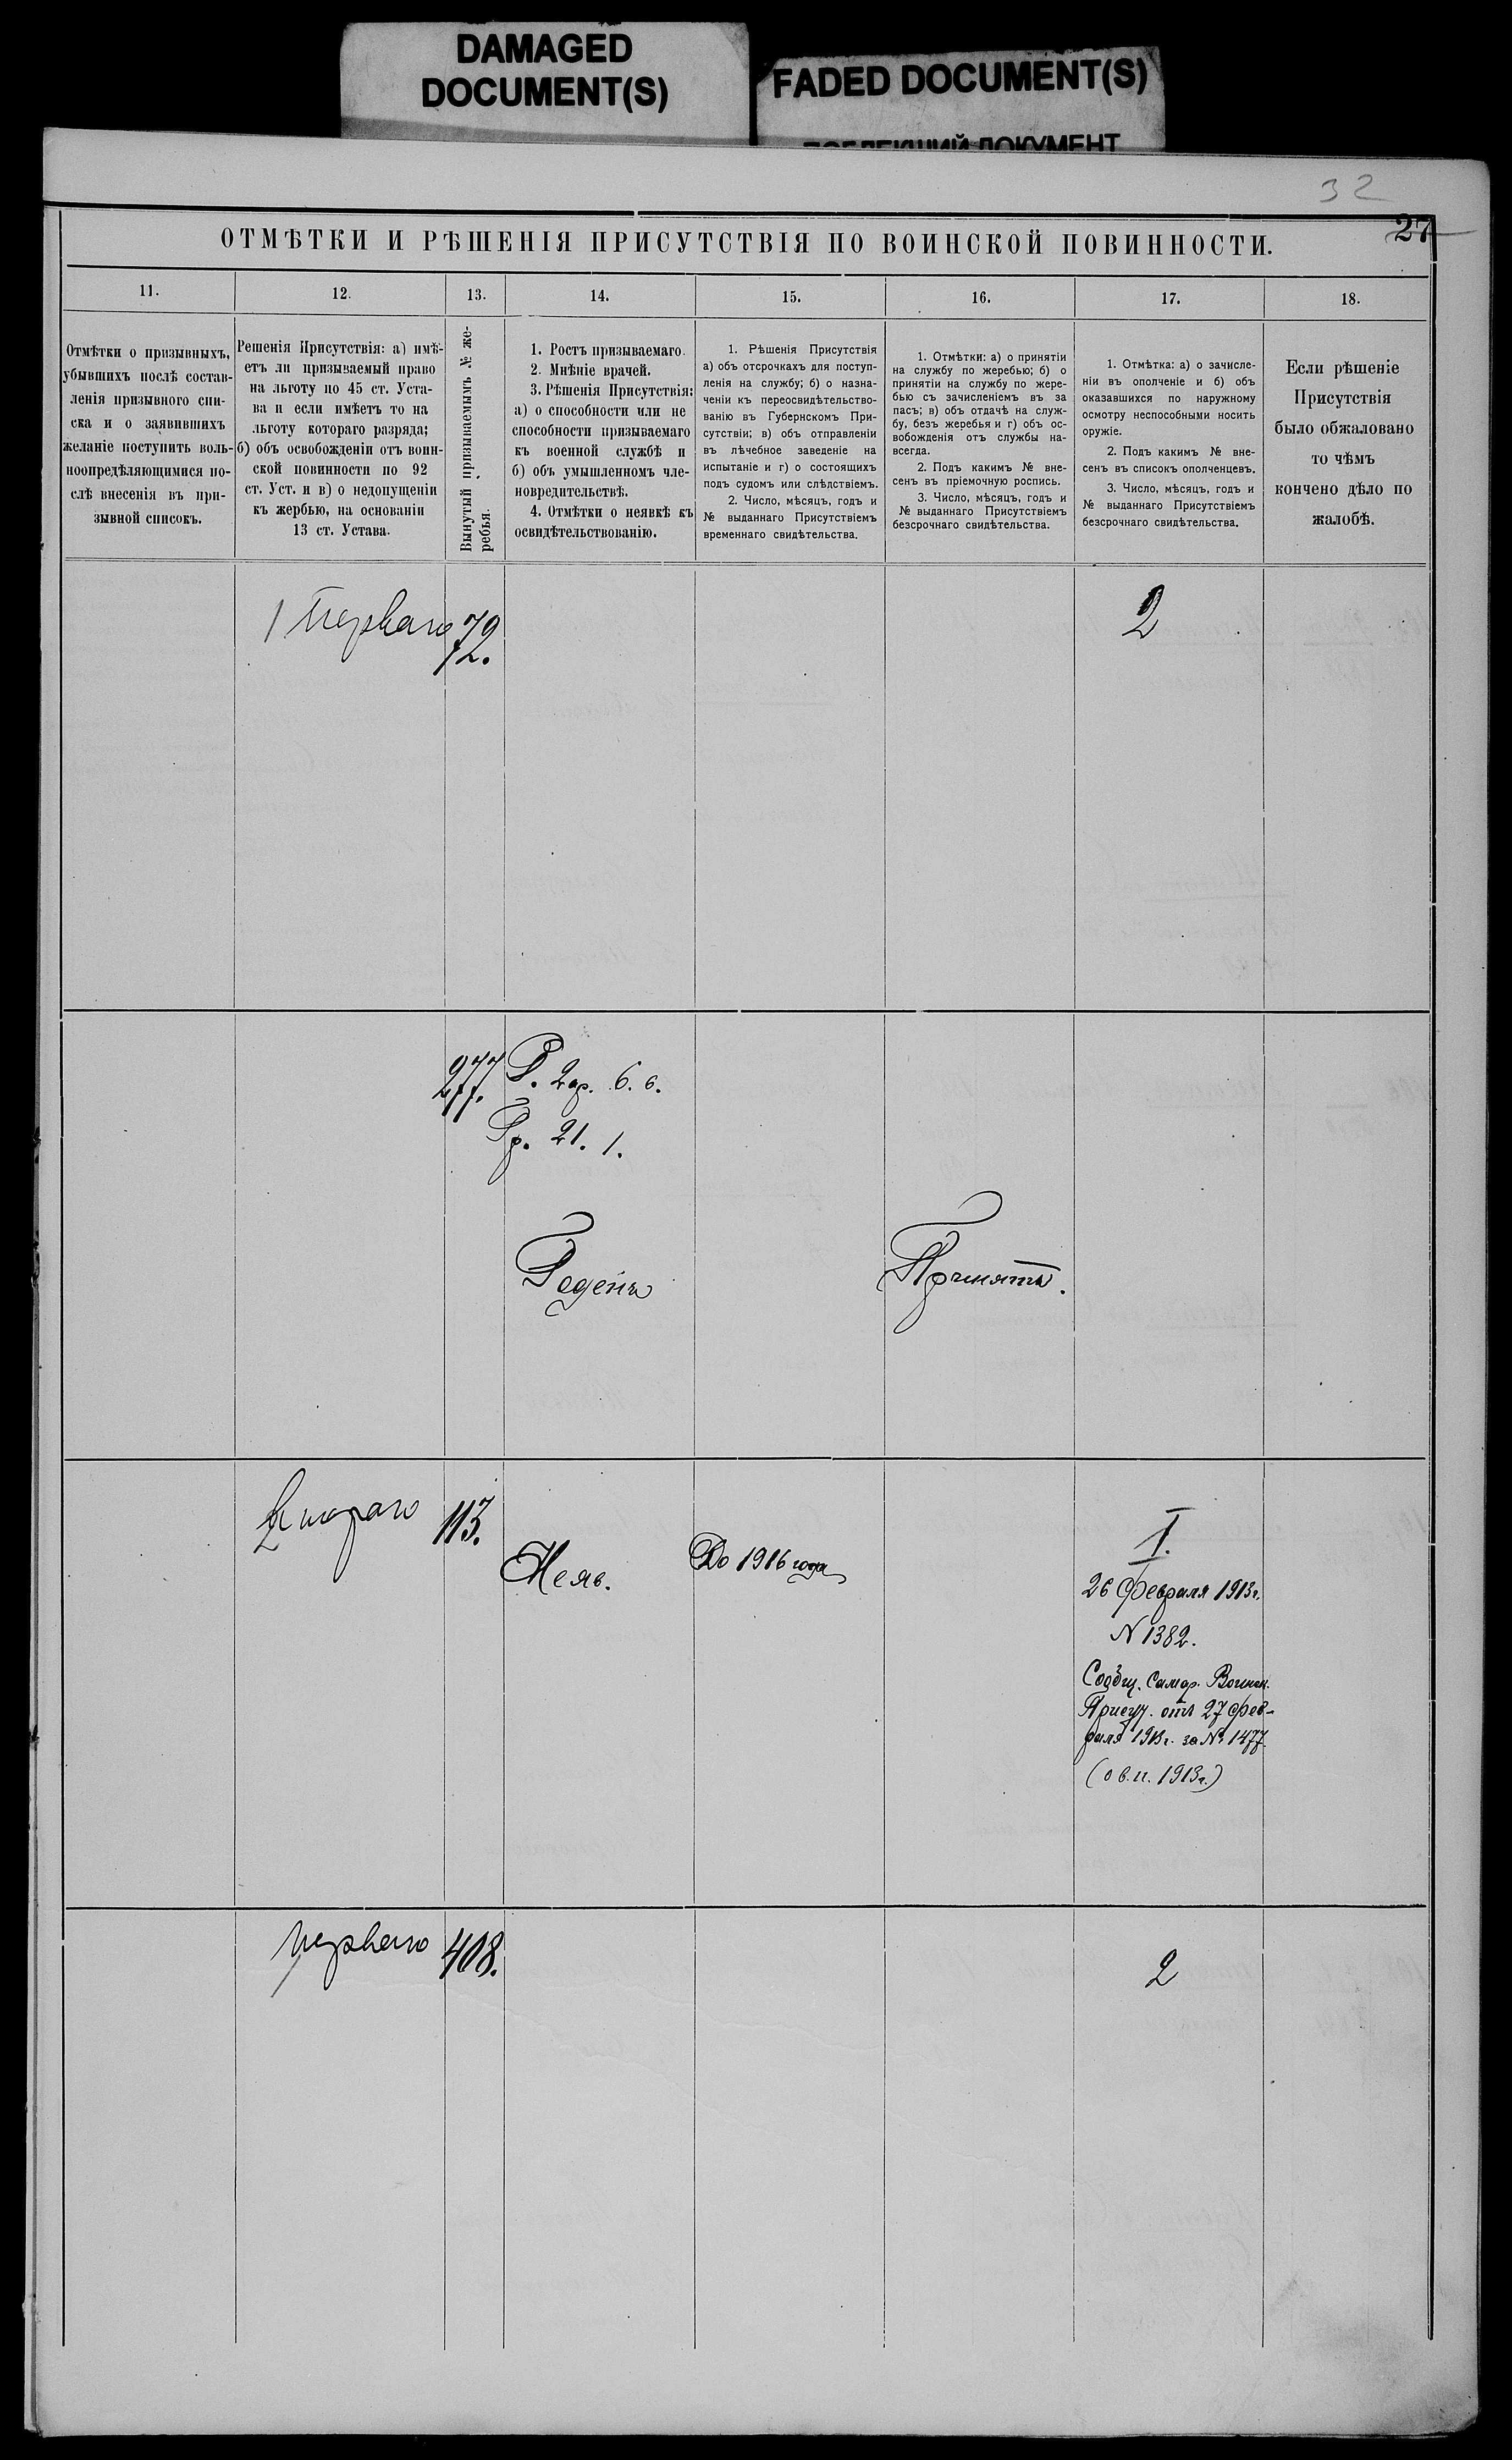 DAMAGED
DOCUMENT(S)
FADED DOCUMENT(S)
ПОБЛЕКШИЙ ДОКУМЕНТ
32
27
ОТМѢТКИ И РѢШЕНІЯ ПРИСУТСТВІЯ ПО ВОИНСКОЙ ПОВИННОСТИ.
11.
12.
13.
14.
15.
16.
17.
18.
Отмѣтки о призывныхъ,
убывшихъ послѣ состав-
ленія призывного спи-
ска и о заявившихъ
желаніе поступить воль-
ноопредѣляющимися по-
слѣ внесенія въ при-
зывной списокъ.
Решенія Присутствія: а) имѣ-
етъ ли призываемый право
на льготу по 45 ст. Уста-
ва и если имѣетъ то на
льготу котораго разряда;
б) объ освобожденіи отъ воин-
ской повинности по 92
ст. Уст. и в) о недопущеніи
къ жербью, на основаніи
13 ст. Устава.
Вынутый призываемымъ № же-
ребья.
1. Ростъ призываемаго.
2. Мнѣніе врачей.
3. Рѣшенія Присутствія:
а) о способности или не
способности призываемаго
къ военной службѣ и
б) объ умышленномъ чле-
новредительствѣ.
4. Отмѣтки о неявкѣ къ
освидѣтельствованію.
1. Рѣшенія Присутствія
а) объ отсрочкахъ для поступ-
ленія на службу; б) о назна-
ченіи къ переосвидѣтельство-
ванію въ Губернскомъ При-
сутствіи; в) объ отправленіи
въ лѣчебное заведеніе на
испытаніе и г) о состоящихъ
подъ судомъ или слѣдствіемъ.
2. Число, мѣсяцъ, годъ и
№ выданнаго Присутствіемъ
временнаго свидѣтельства.
1. Отмѣтки: а) о принятіи
на службу по жеребью; б) о
принятіи на службу по жере-
бью съ зачисленіемъ въ за
пасъ; в) объ отдачѣ на служ-
бу, безъ жеребья и г) объ ос-
вобожденія отъ службы на-
всегда.
2. Подъ какимъ № вне-
сенъ въ пріемочную роспись.
3. Число, мѣсяцъ, годъ и
№ выданнаго Присутствіемъ
безсрочнаго свидѣтельства.
1. Отмѣтка: а) о зачисле-
ніи въ ополченіе и б) объ
оказавшихся по наружному
осмотру неспособными носить
оружіе.
2. Подъ какимъ № вне-
сенъ въ списокъ ополченцевъ.
3. Число, мѣсяцъ, годъ и
№ выданнаго Присутствіемъ
безсрочнаго свидѣтельства.
Если рѣшеніе
Присутствія
было обжаловано
то чѣмъ
кончено дѣло по
жалобѣ.
1 Перваго
72.
2
277.
Р. 2 ар. 6. в.
Гр. 21. 1.
Годенъ
Принятъ.
Втораго
113.
Неяв.
До 1916 года
I.
26 февраля 1913 г.
N 1382.
Сообщ. Самар. Воинск.
Присут. отъ 27 фев-
раля 1913 г. за № 1477.
(о в. п. 1913 г.)
перваго
408.
2